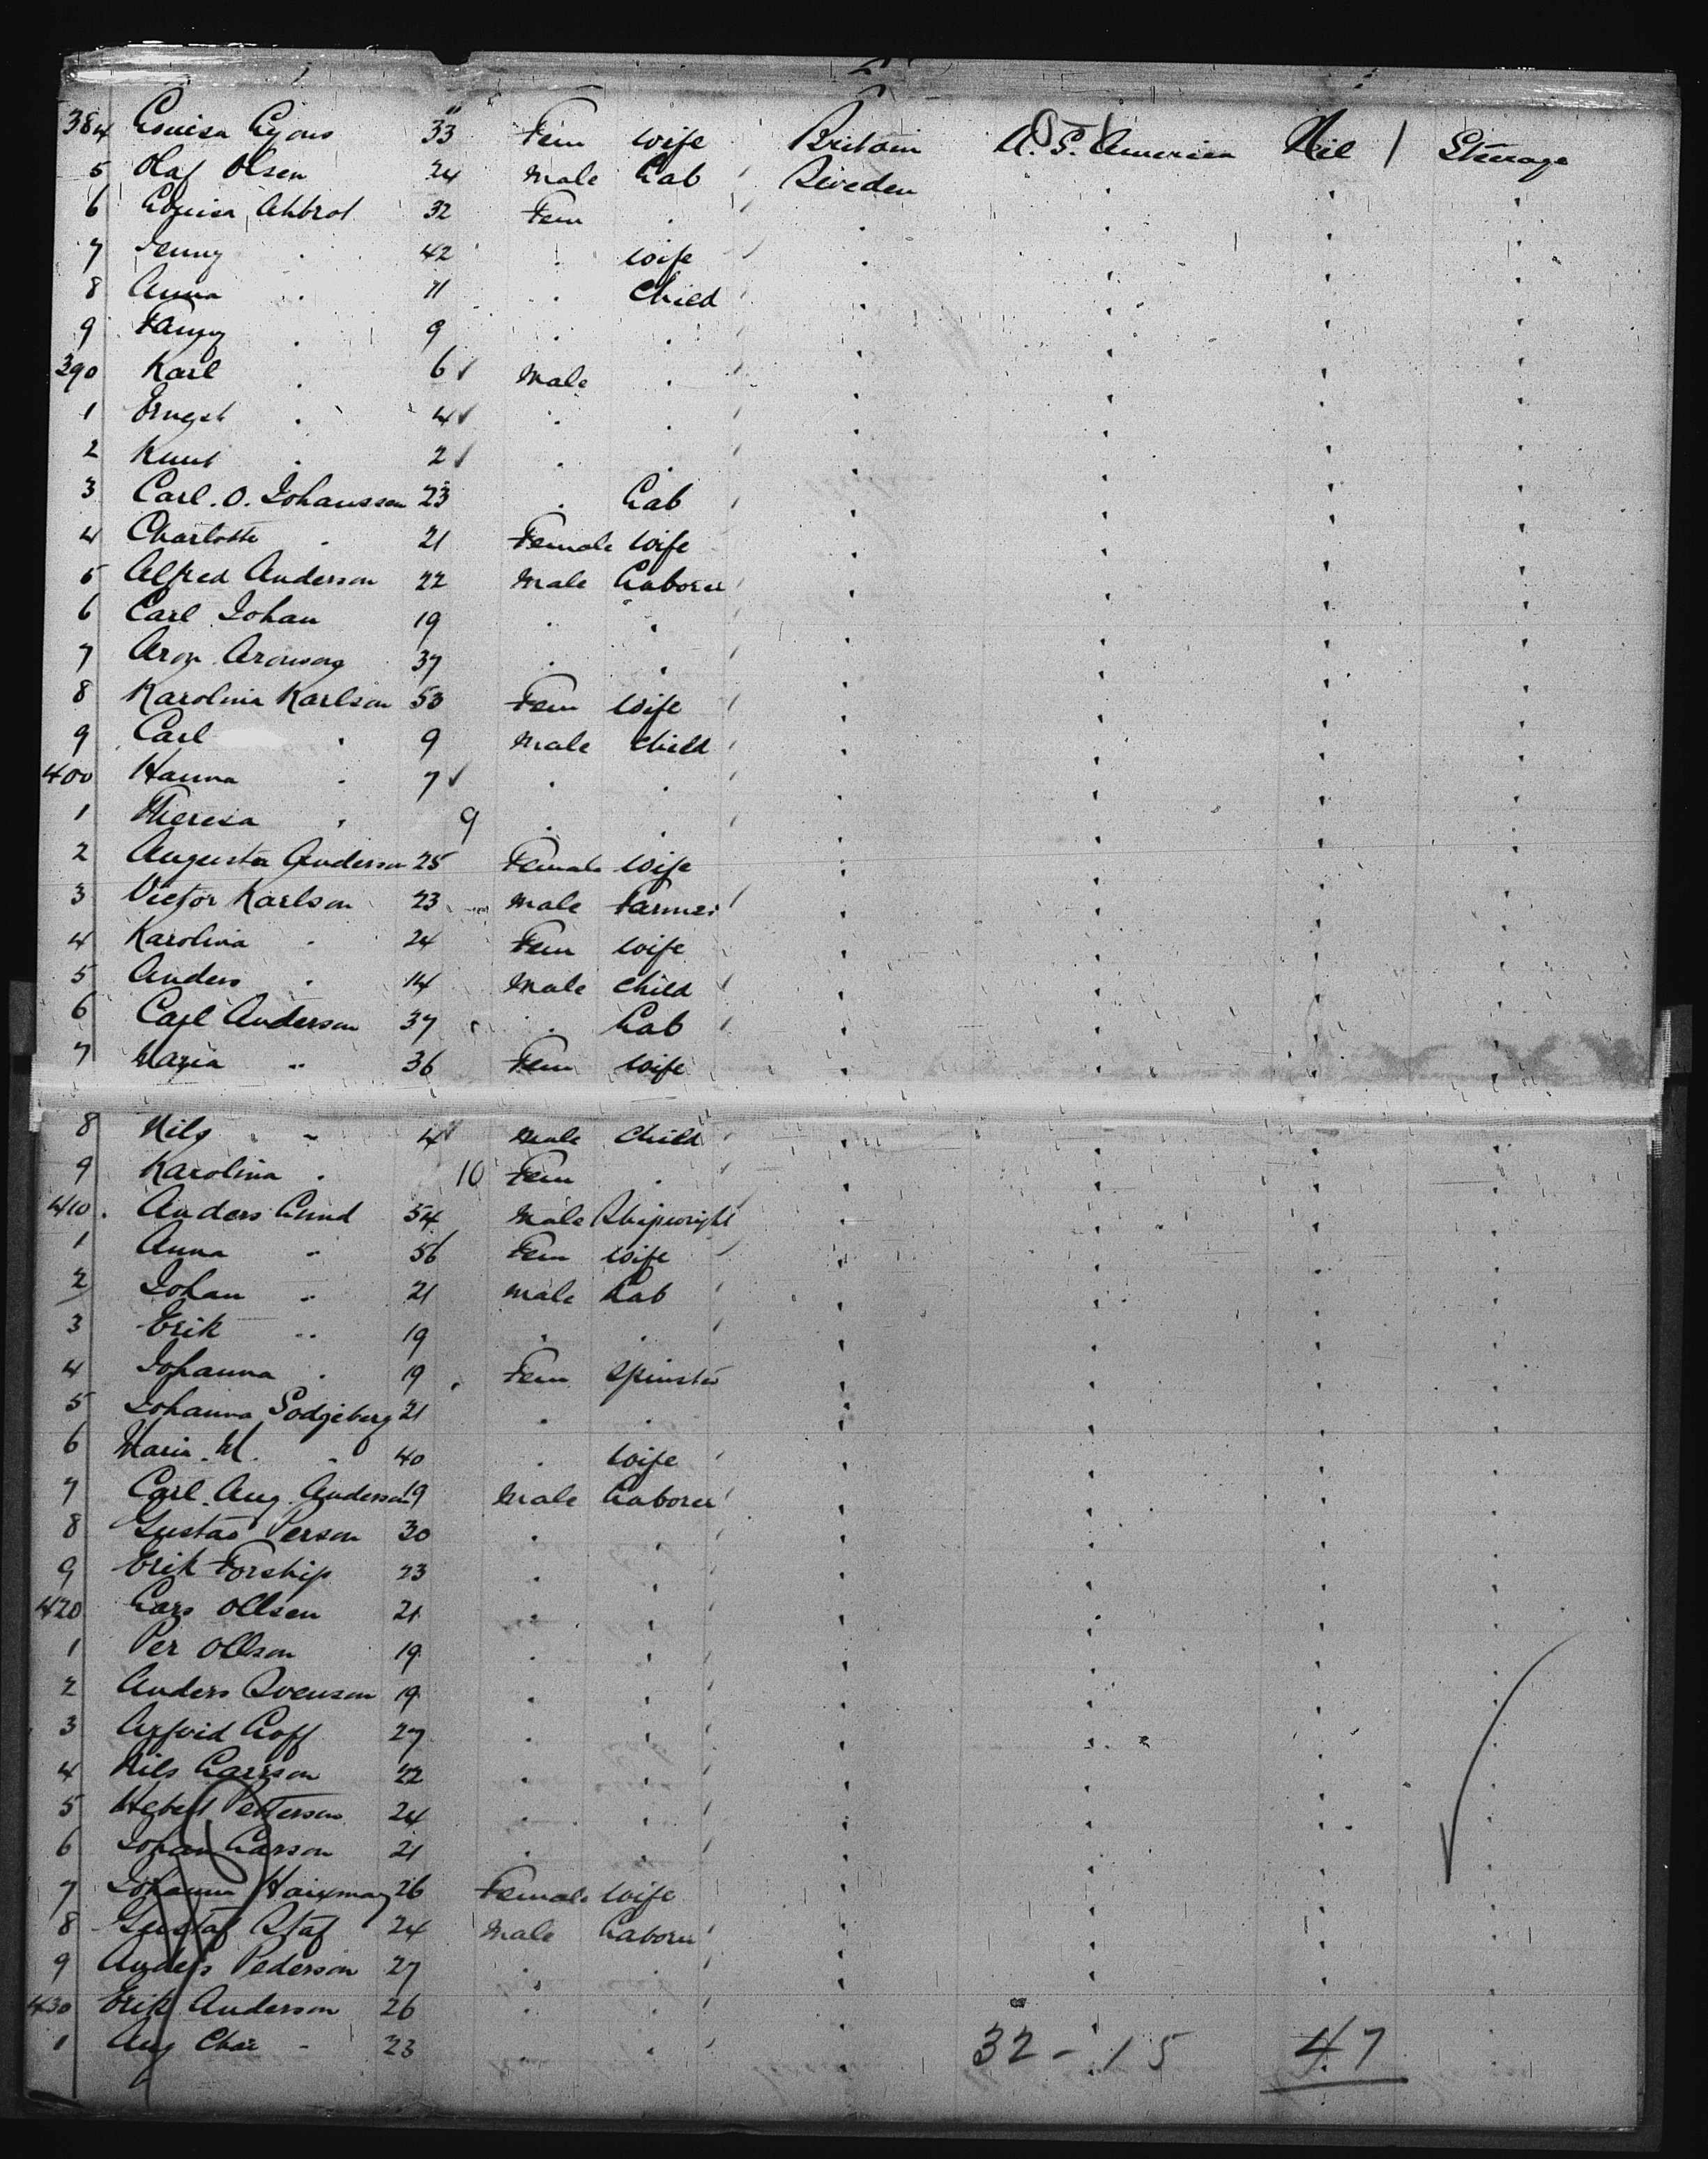 384 Louisa Lyons 33 Fem wife Britain U. S. America Nil / Steerage
5 Olaf Olsen 24 Male Lab Sweden
6 Louisa Ahbrot 32 Fem .
7 Jenny . 42 . wife
8 Anna . 11 . Child
9 Fanny . 9 . .
390 Karl . 6 Male .
1 Ernest . 4 . .
2 Knut . 2 . .
3 Carl. O. Johansson 23 . Lab
4 Charlotte . 21 Female wife
5 Alfred Anderson 22 Male Laborer
6 Carl Johan 19 . .
7 Aron Aronson 37 . .
8 Karolina Karlson 53 Fem wife
9 Carl . 9 Male child
400 Hanna . 7 . .
1 Theresa . 9 . .
2 Augusta Anderson 25 Female wife
3 Victor Karlson 23 Male Farmer
4 Karolina . 24 Fem wife
5 Anders . 14 Male child
6 Carl Anderson 37 . Lab
7 Maria .. 36 Fem wife
8 Nils .. 4 Male Child
9 Karolina . 10 Fem .
410 Anders Lund 54 Male Shipwright
1 Anna .. 56 Fem wife
2 Johan .. 21 Male Lab
3 Erik .. 19 . .
4 Johanna . 19 Fem Spinster
5 Johanna Sodgeberg 21 . .
6 Maria. M. . 40 . wife
7 Carl. Aug. Anderson 19 Male Laborer
8 Gustav Person 30 . .
9 Erik Forship 23 . .
420 Lars Ollsen 21 . .
1 Per Ollson 19 . .
2 Anders Svenson 19 . .
3 Arfvid Loff 27 . .
4 Nils Larsson 22 . .
5 Petterson 24 . .
6 Johan Larson 21 . .
7 Johanna 26 Female wife
8 Gustaf Staf 24 Male Laborer
9 Anders Pederson 27 . .
430 Erik Anderson 26 . .
1 Aug 23 . .
32 - 15 47